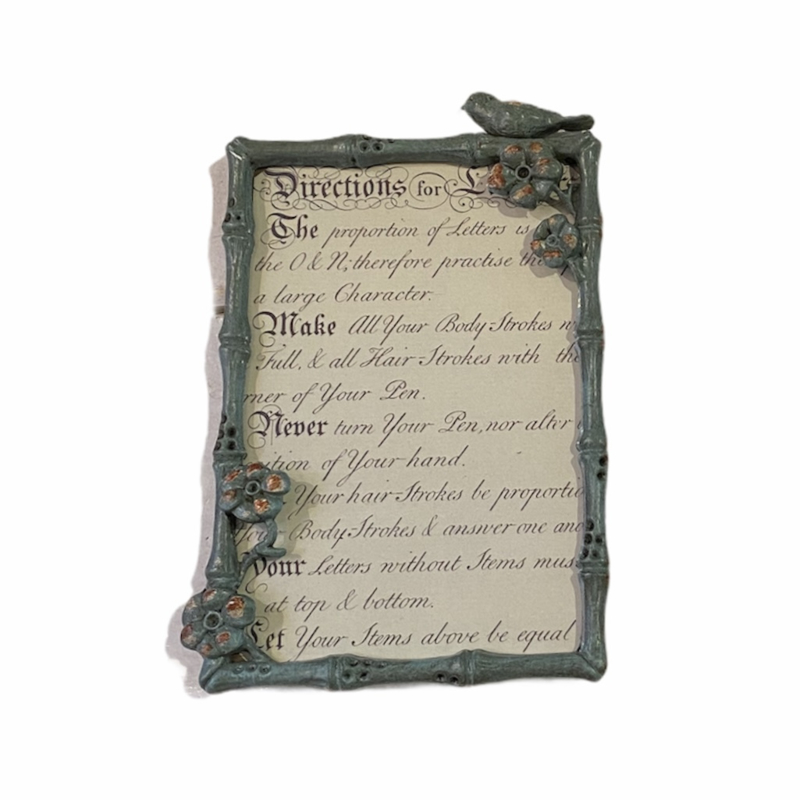 Directions for
The proportion of Letters is
the O & N; therefore practise
a large Character.
Make All Your Body Strokes
Full, & all Hair Strokes with the
of Your Pen.
Never turn Your Pen, nor alter
of Your hand.
Your hair Strokes be
Body Strokes & answer one and
Your Letters without Stems must
at top & bottom.
Let Your Stems above be equal